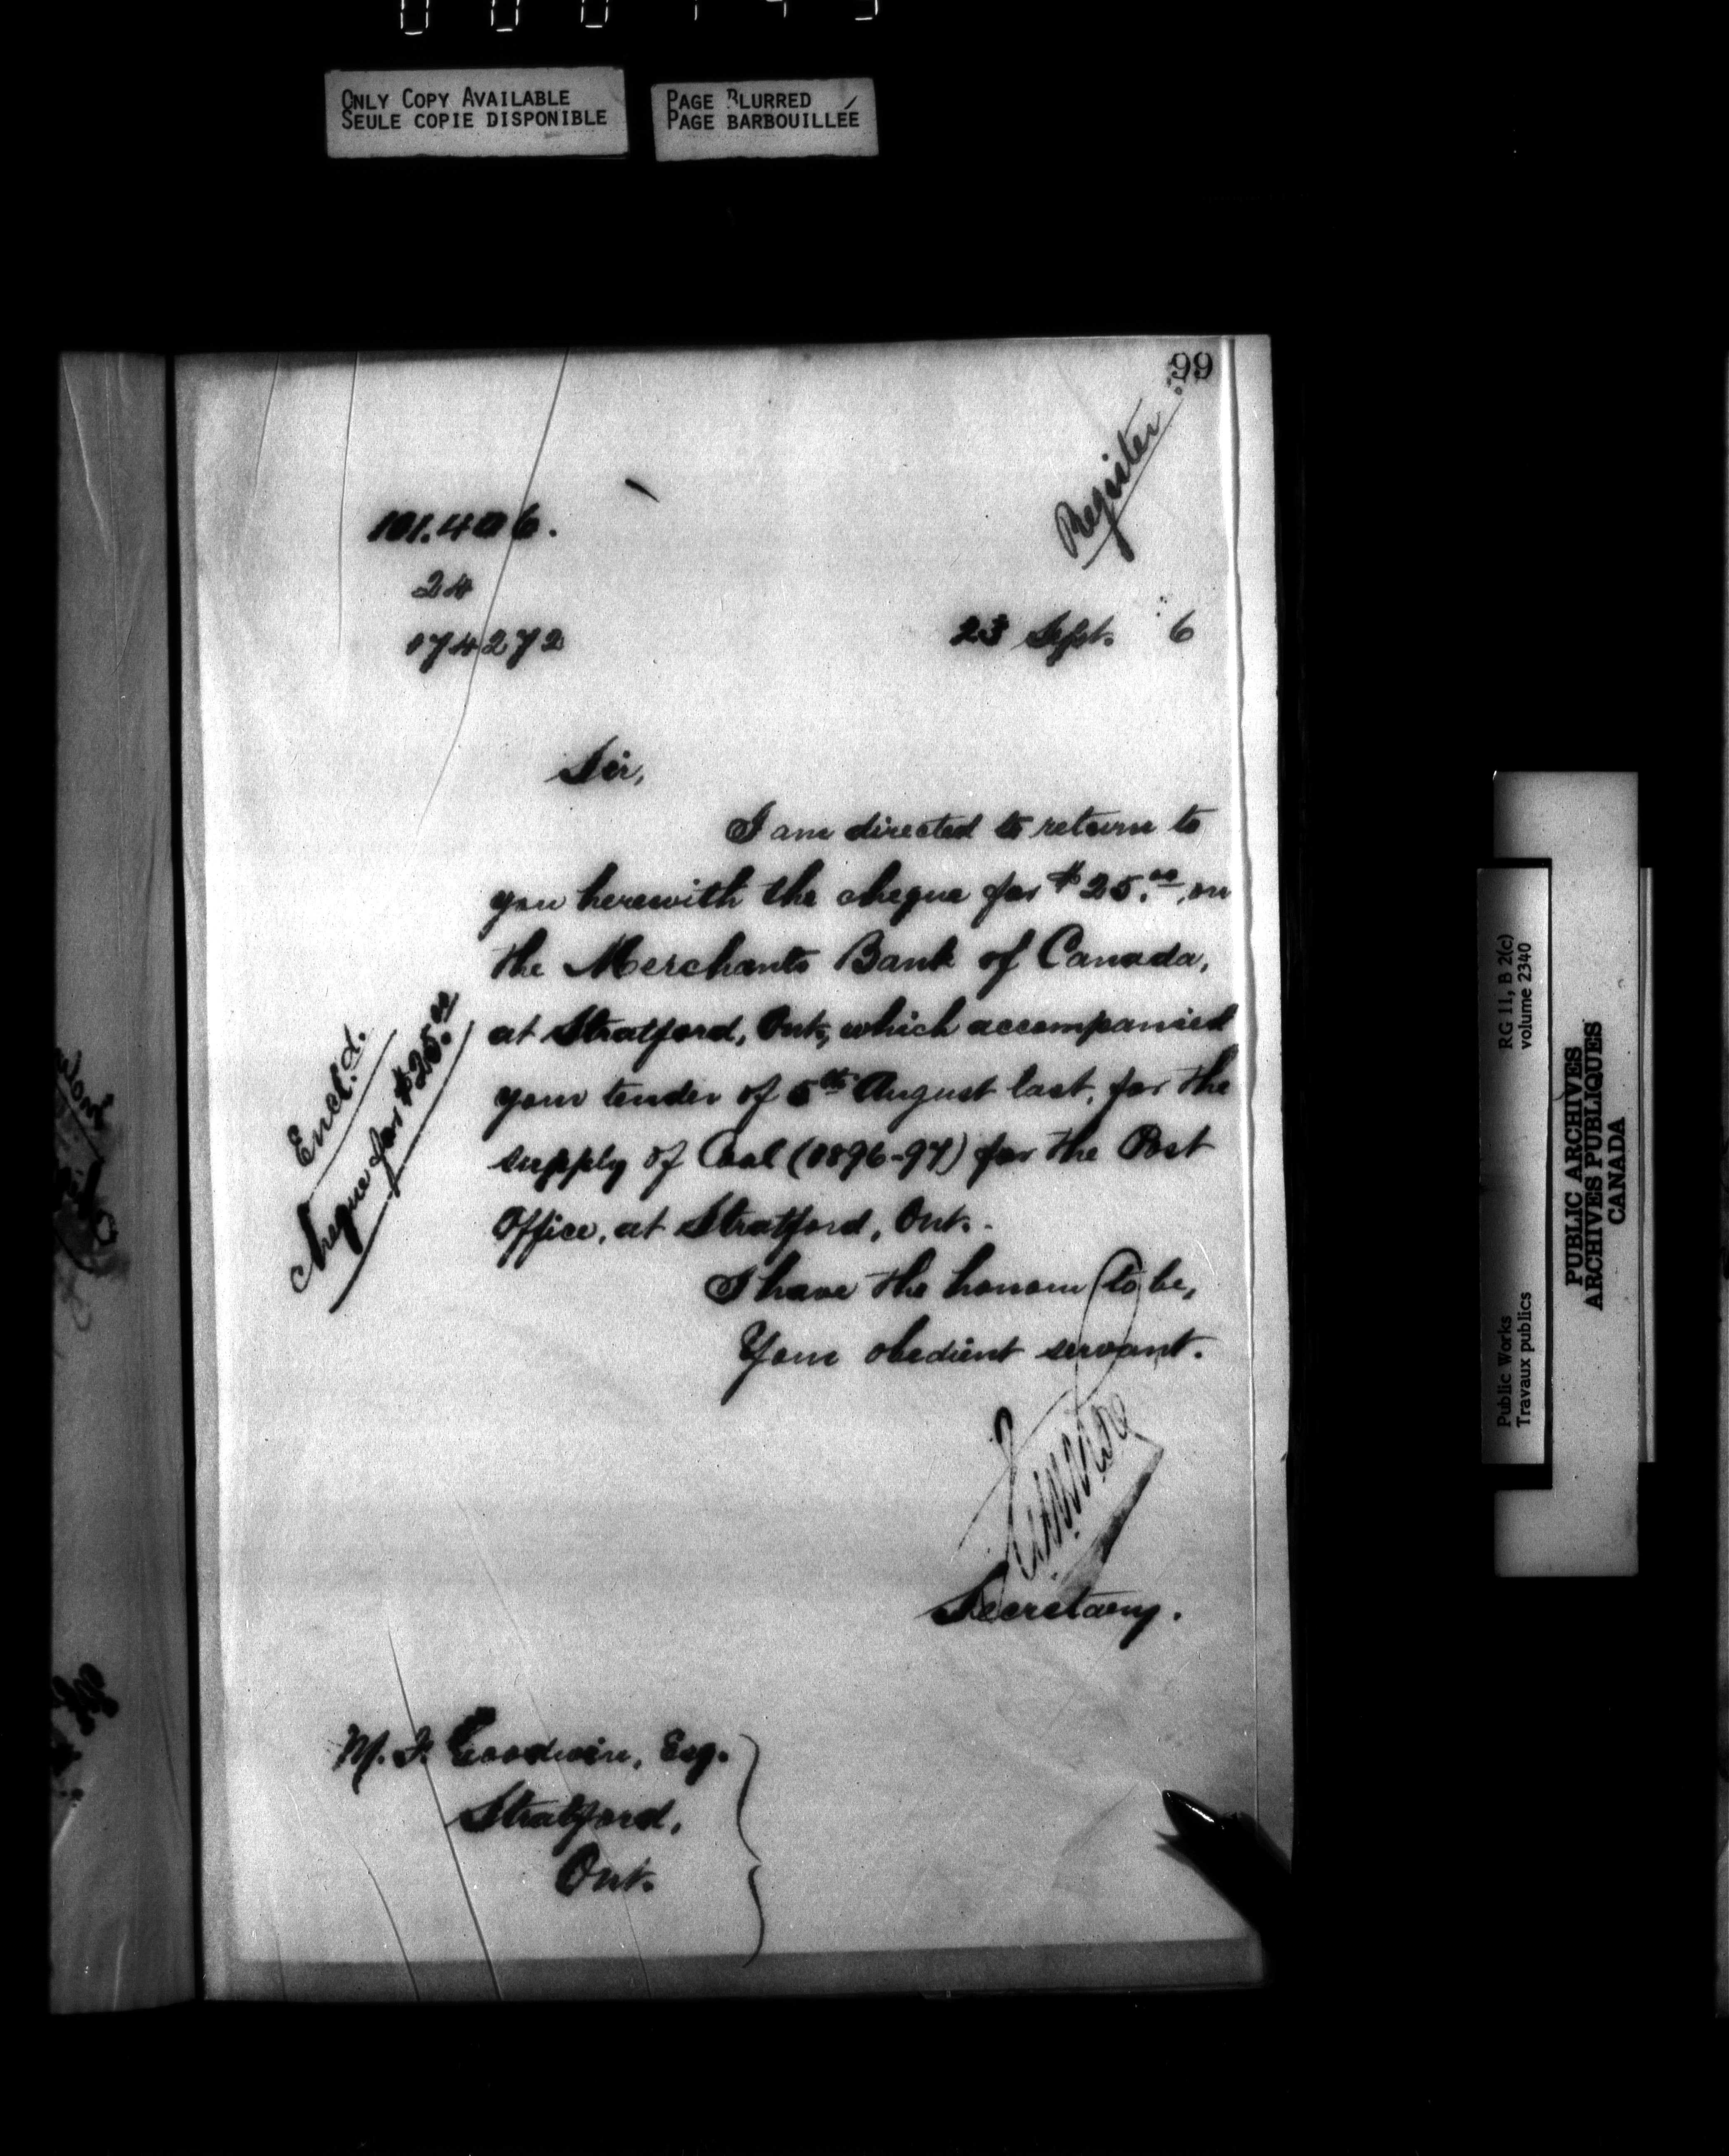 ONLY COPY AVAILABLE
SEULE COPIE DISPONIBLE
PAGE BLURRED
PAGE BARBOUILLÉE
99
Register
101.406.
24
174272
23 Sept. 6
Sir,
I am directed to return to
you herewith the cheque for $25.00, on
the Merchants Bank of Canada,
at Stratford, Ont., which accompanied
your tender of 5th August last, for the
supply of Coal (1896-97) for the Post
Office, at Stratford, Ont.
I have the honour to be,
Your obedient servant.
Secretary.
Encl.d.
Cheque for $25.00
M. F. Goodwin, Esq.
Stratford,
Ont.
RG 11, B 2(c)
volume 2340
Public Works
Travaux publics
PUBLIC ARCHIVES
ARCHIVES PUBLIQUES
CANADA